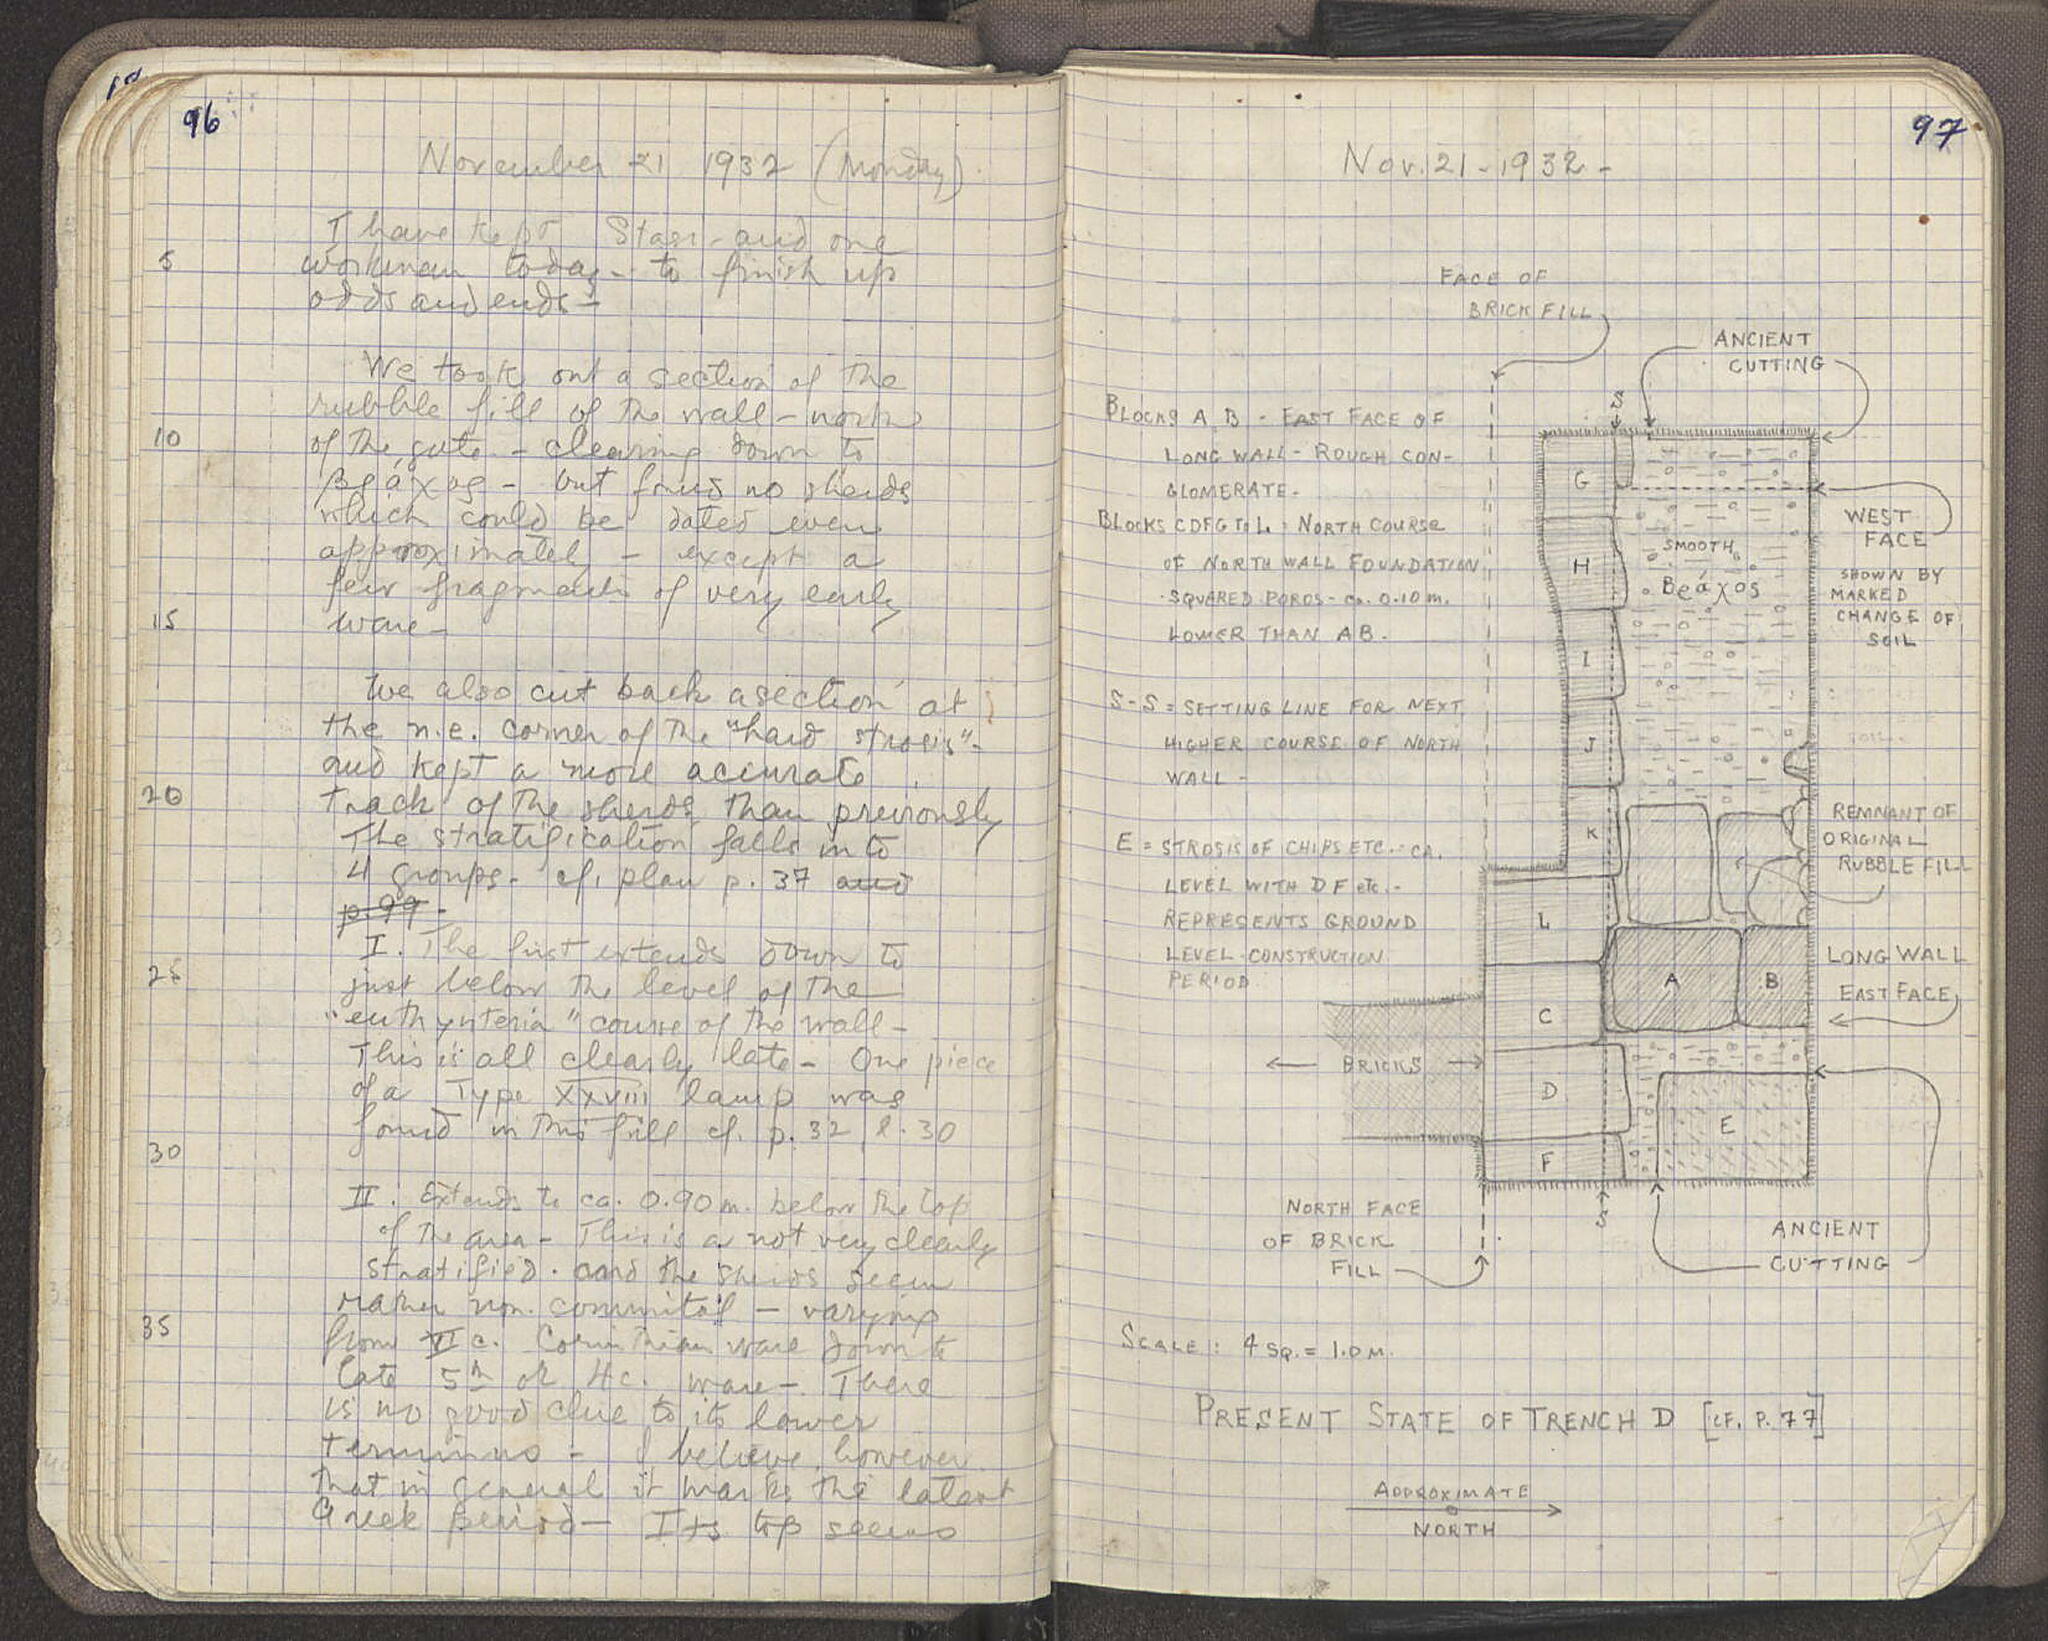 96
November 21 1932 (Monday)
I have kept Stasi and one
5
workman today - to finish up
odds and ends -
We took out a section of the
rubble fill of the wall - north
10
of the gate - clearing down to
βράχος - but found no sherds
which could be dated even
approximately - except a
few fragments of very early
15
ware -
We also cut back a section at
the n.e. corner of the "hard strosis" -
and kept a more accurate
20
track of the sherds than previously
The stratification falls into
4 groups - cf. plan p. 37 and
p. 99 -
I. The first extends down to
25
just below the level of the
"euthynteria" course of the wall -
This is all clearly late - One piece
of a Type XXVIII lamp was
found in this fill cf. p. 32, l. 30
30
II. Extends to ca. 0.90 m. below the top
of the area - This is a not very clearly
stratified - and the sherds seem
rather non-commital - varying
35
from VI c. Corinthian ware down to
late 5th or 4c. ware - There
is no good clue to its lower
terminus - I believe, however
that in general it marks the latest
Greek period - Its top seems
97
Nov. 21 - 1932 -
FACE OF
BRICK FILL
ANCIENT
CUTTING
S
BLOCKS A B - EAST FACE OF
LONG WALL - ROUGH CON-
GLOMERATE -
BLOCKS CDFG TO L : NORTH COURSE
OF NORTH WALL FOUNDATION
SQUARED POROS - ca. 0.10 m.
LOWER THAN AB.
S-S = SETTING LINE FOR NEXT
HIGHER COURSE OF NORTH
WALL -
E = STROSIS OF CHIPS ETC. - CA.
LEVEL WITH D F etc. -
REPRESENTS GROUND
LEVEL CONSTRUCTION
PERIOD
G
H
I
J
K
L
C
D
F
SMOOTH
Βράχος
A
B
E
WEST
FACE
SHOWN BY
MARKED
CHANGE OF
SOIL
REMNANT OF
ORIGINAL
RUBBLE FILL
LONG WALL
EAST FACE
BRICKS
NORTH FACE
OF BRICK
FILL
S
ANCIENT
CUTTING
SCALE : 4 SQ. = 1.0 M.
PRESENT STATE OF TRENCH D [CF. P. 77]
APPROXIMATE
NORTH